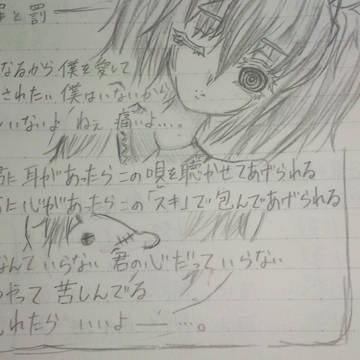 罪と罰――
なるから 僕を愛して
されたい 僕はいないから
いないよ ねぇ 痛いよ‥‥。
に 耳があったらこの唄を聴かせてあげられる
に 心があったらこの「スキ」で包んであげられる
なんていらない 君の心だっていらない
やって 苦しんでる
れたら いいよ ―― …。